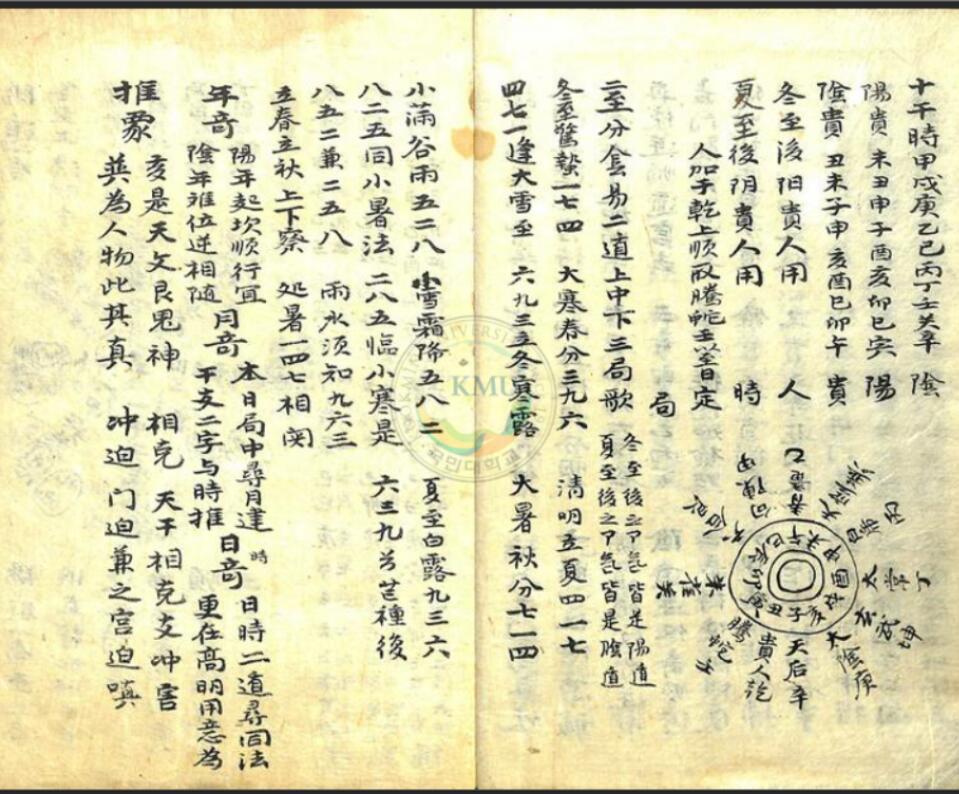 十干時甲戊庚乙己丙丁壬癸辛 陰
陽貴 未丑申子酉亥卯巳寅 陽
陰貴 丑未子申亥酉巳卯午 貴
冬至後阳貴人用 人
夏至後阴貴人用 時
人加子乾上順取騰蛇至 定 局
二至分 易二道上中下三局歌 冬至後二十四气皆是陽道
夏至後 气皆是陰道
冬至驚蟄一七四 大寒春分三九六 清明立夏四一七
四七一逢大雪至 六九三立冬寒露 大暑秋分七一四
小滿谷雨五二八 小雪霜降五八二 夏至白露九三六
八二五同小暑法 二八五臨小寒是 六三九 芒種後
八五二兼二五八 雨水須知九六三
立春立秋上下察 处暑一四七相
年奇 陽年起坎順行宜
陰年 位逆相隨
月奇 本日局中尋月建
干支二字与時推
日奇 時 日時二道尋同法
更在高明用意為
推 亥是天文艮鬼神 相克 天干相克支冲宫
巽為人物此其真 冲迫 门迫兼之宫迫
貴人乾
天后辛
太陰庚
玄武坤
太常丁
白帝丙
騰蛇
子
丑
寅
卯
辰
巳
午
未
申
酉
戌
亥
KMU
국민대학교